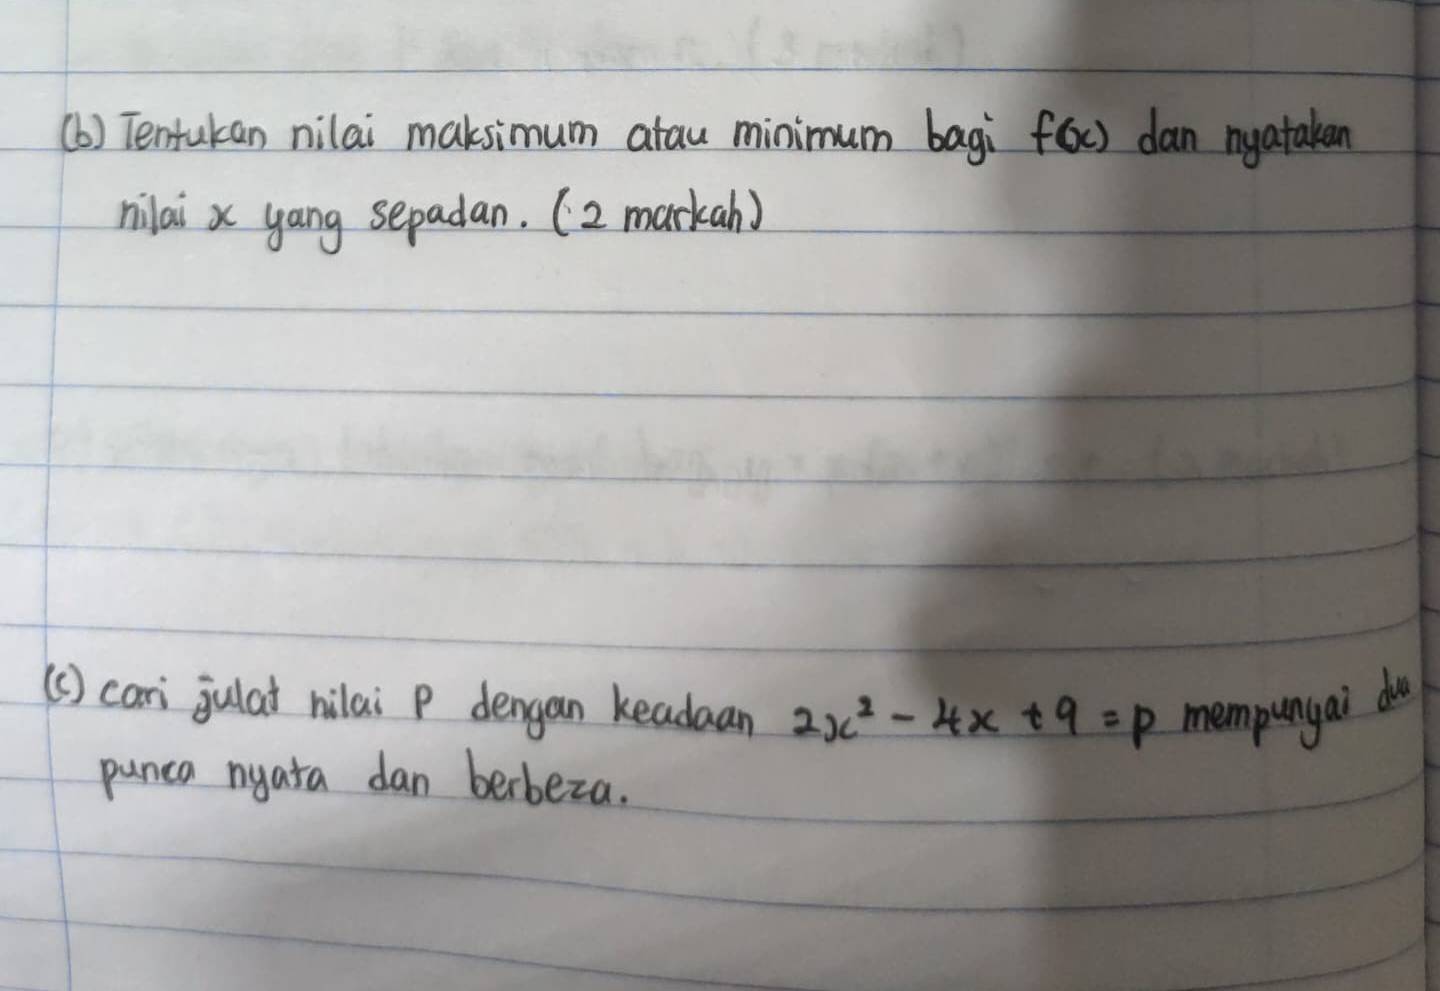 (b) Tentukan nilai maksimum atau minimum bagi f(x) dan nyatakan
nilai x yang sepadan. (2 markah)
(c) cari julat nilai p dengan keadaan 2x² - 4x + 9 = p mempunyai dua
punca nyata dan berbeza.